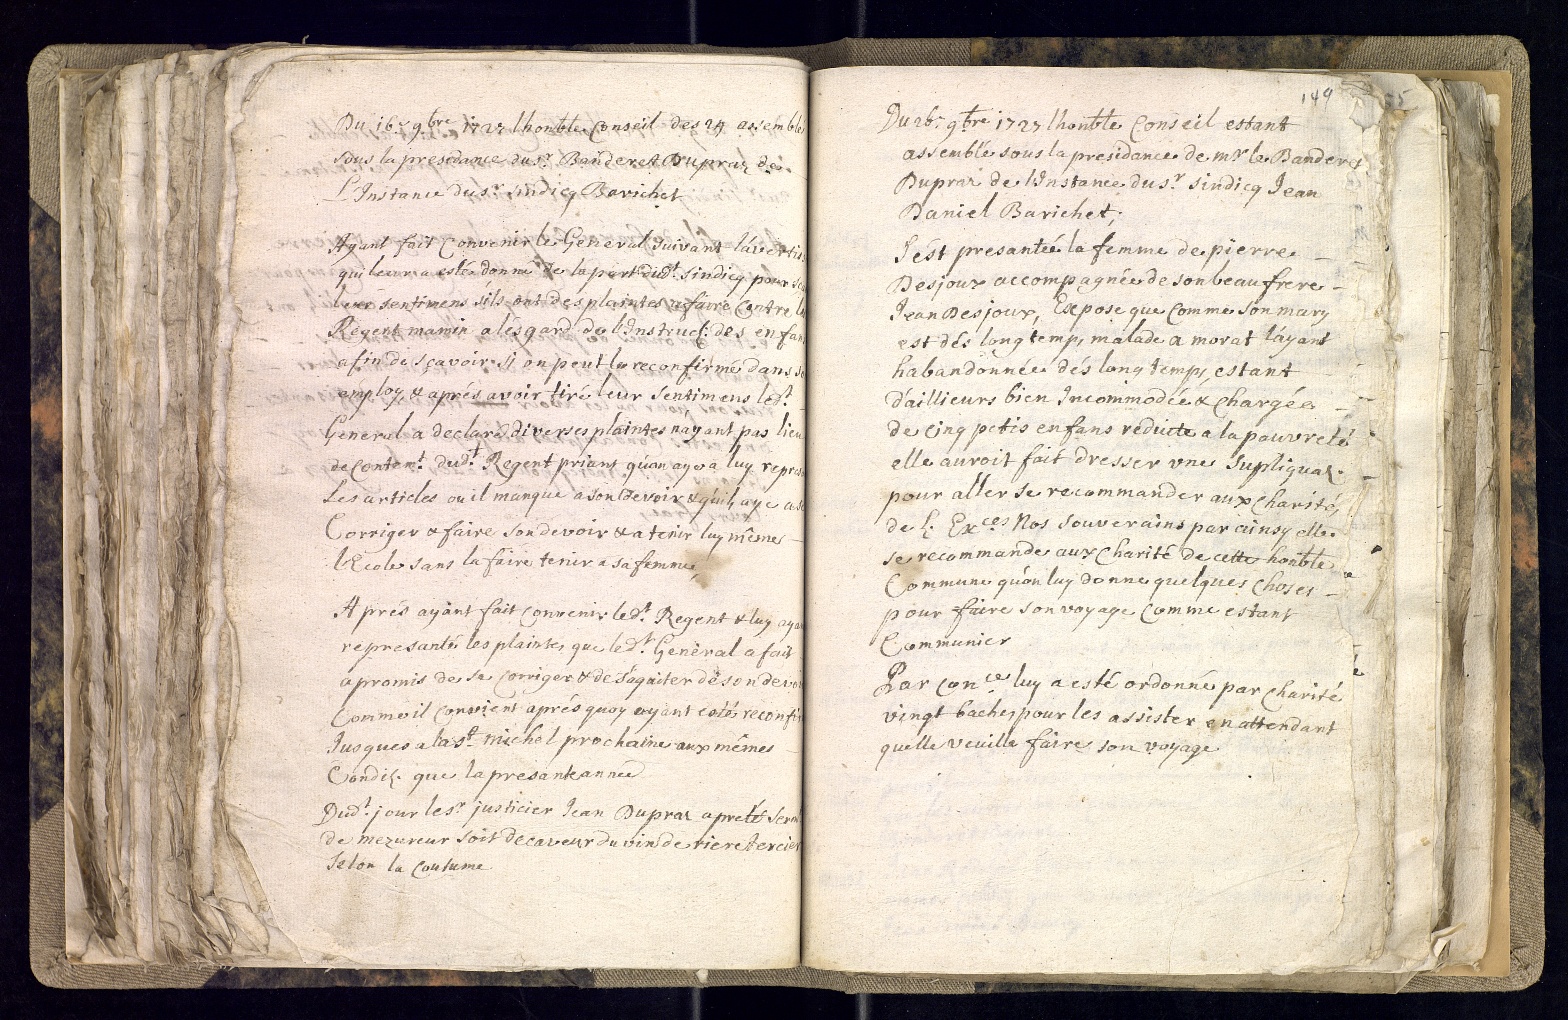 Du 16e 9bre 1727 lhonble Conseil des 24 assemblé
sous la presidance du sr. Banderet Dupraz de
L'Instance du sr. sindicq Barichet
Ayant fait Convenir le General suivant lavertis
qui leur a esté donné de la part dudt. sindicq pour
leur sentimens s'ils ont des plaintes a faire Contre le
Regent mamin a lésgard de l'Instruct: des enfan
afin de sçavoir si on peut le reconfirmé dans s
employ, & aprés avoir tiré leur sentimens ledt.
General a declaré diverses plaintes nayant pas lieu
de Contemt. dudt. Regent priant qu'on aye a luy repres
Les articles ou il manque a son devoir & qu'il aye a se
Corriger & faire son devoir & a tenir luy mémes
l'Ecole sans la faire tenir a sa femme,
Aprés ayant fait convenir ledt. Regent & luy aya
represanté les plaintes que ledt. Genéral a fait
a promis de se Corriger & de s'aquiter de son devoi
Comme il convient aprés quoy ayant estés reconfir
Jusques a la st. Michel prochaine aux mémes
Condit. que la presante année
Dudt. jour le sr. justicier Jean Dupraz a preté sérm
de mezureur soit decaveur du vin de tiere tercier
selon la coutume
149
Du 26e 9bre 1727 lhonble Conseil estant
assemblé sous la presidance de mr. le Banderet
Dupraz de l'Instance du sr. sindicq Jean
Daniel Barichet,
S'est presantée la femme de pierre
Desjoux accompagnée de son beau frere
Jean Desjoux, Expose que Comme son mary
est dés long temps malade a morat l'ayant
habandonnée dés long temps, estant
d'aillieurs bien Incommodée & Chargée
de Cinq petis enfans reduitte a la pauvreté
elle auroit fait dresser une supliquat.
pour aller se recommander aux charités
de l: Exces Nos souverains par ainsy elle
se recommande aux Charité de cette honble
Commune qu'on luy donne quelques choses
pour faire son voyage Comme estant
Communier
Par conces luy a esté ordonné par charité
vingt baches pour les assister en attendant
quelle veuille faire son voyage